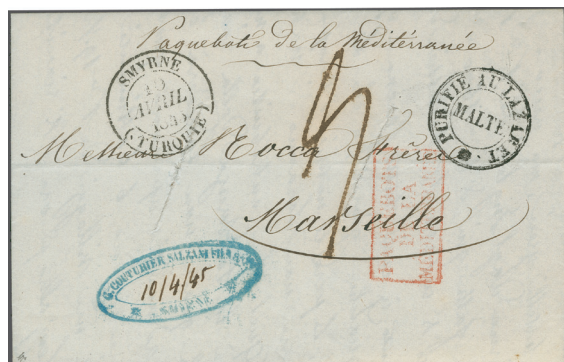 Paquebots de la Méditérranée
SMYRNE
10
AVRIL
(TURQUIE)
PURIFIÉ AU LAZARET
MALTE
Rocca Frères
Marseille
PAQUEBOTS
DE LA
MÉDITERRANÉE
G. COUTURIER SALZANI FILS
10/4/45
SMYRNE